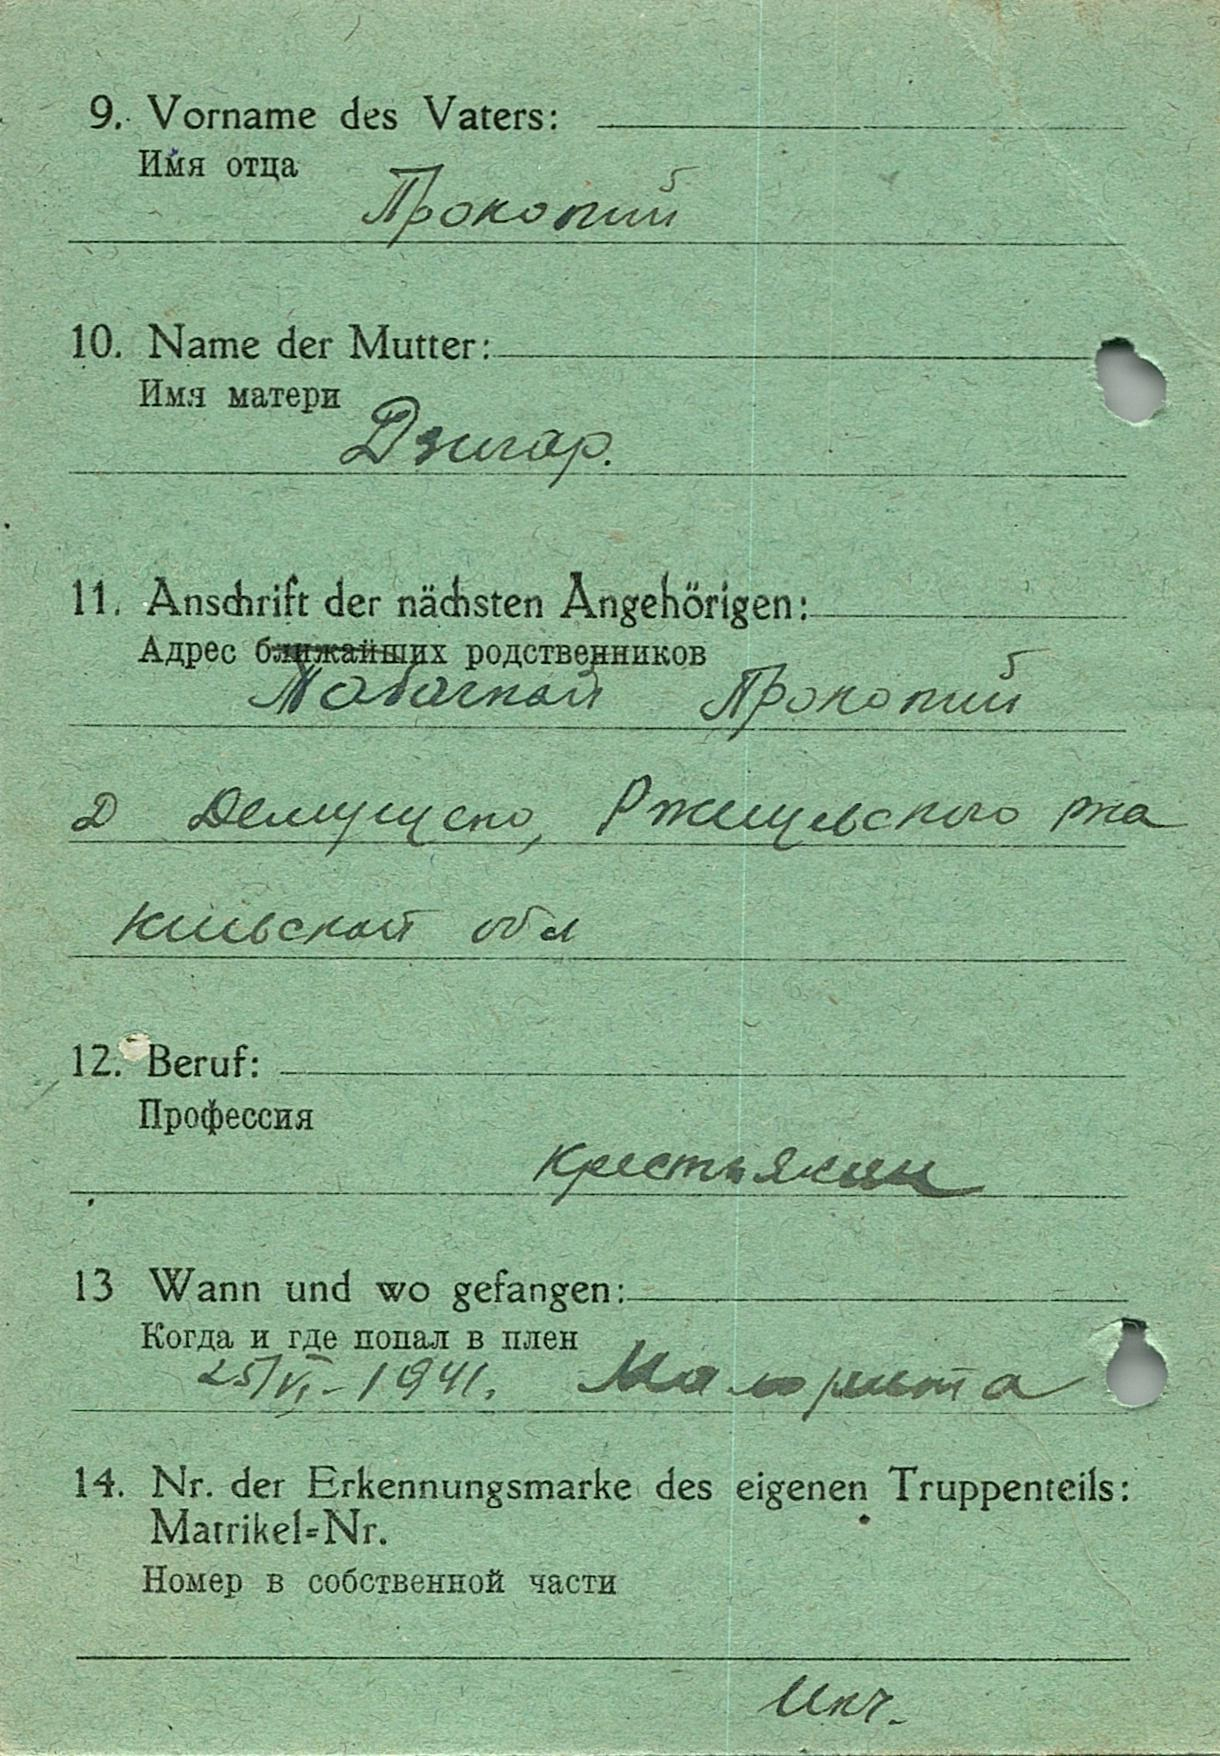 9. Vorname des Vaters:
Имя отца
Прокопий
10. Name der Mutter:
Имя матери
Дзигар.
11. Anschrift der nächsten Angehörigen:
Адрес ближайших родственников
Прокопий
Д Ржищевского рна
Киевской обл
12. Beruf:
Профессия
крестьянин
13 Wann und wo gefangen:
Когда и где попал в плен
25/VI-1941. Малорита
14. Nr. der Erkennungsmarke des eigenen Truppenteils:
Matrikel=Nr.
Номер в собственной части